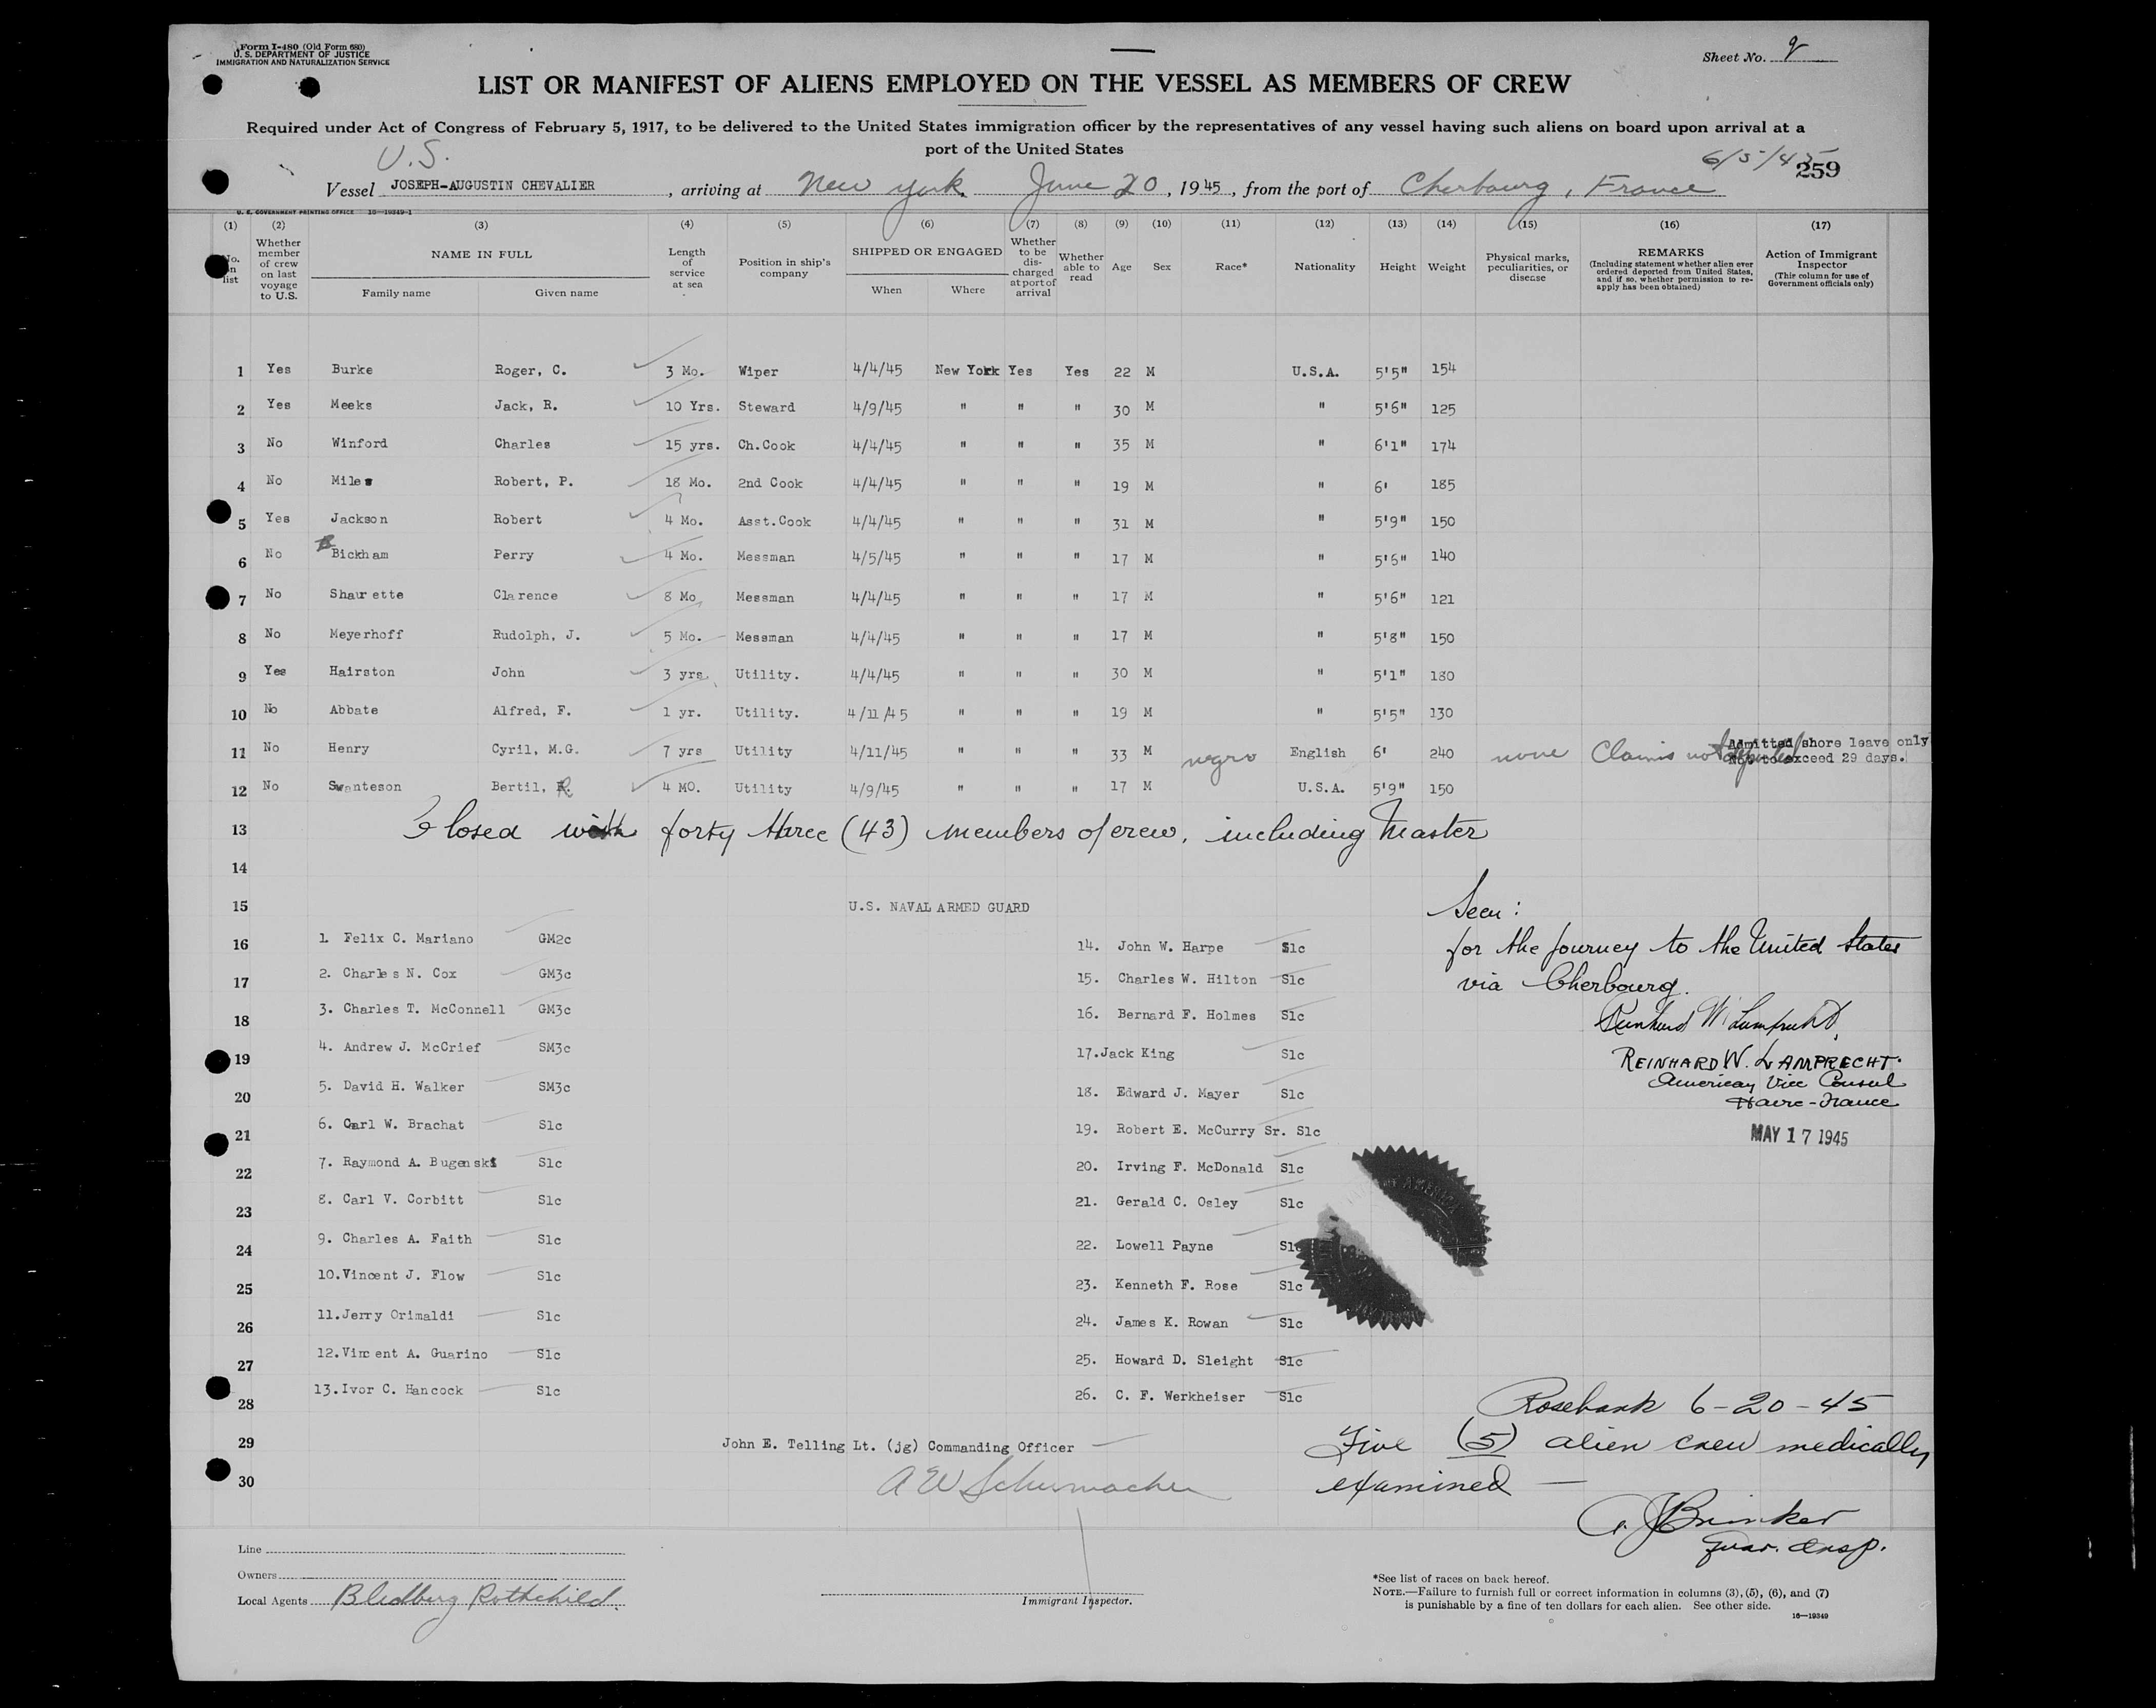 Form I-480 (Old Form 680)
U. S. DEPARTMENT OF JUSTICE
IMMIGRATION AND NATURALIZATION SERVICE
Sheet No.
LIST OR MANIFEST OF ALIENS EMPLOYED ON THE VESSEL AS MEMBERS OF CREW
Required under Act of Congress of February 5, 1917, to be delivered to the United States immigration officer by the representatives of any vessel having such aliens on board upon arrival at a
port of the United States
U.S.
6/5/45
259
Vessel JOSEPH-AUGUSTIN CHEVALIER, arriving at New York June 20, 1945, from the port of Cherbourg, France
U. S. GOVERNMENT PRINTING OFFICE 16-19349-1
(1) (2) (3) (4) (5) (6) (7) (8) (9) (10) (11) (12) (13) (14) (15) (16) (17)
No. in list
Whether member of crew on last voyage to U.S.
NAME IN FULL
Family name Given name
Length of service at sea
Position in ship's company
SHIPPED OR ENGAGED
When Where
Whether to be discharged at port of arrival
Whether able to read
Age
Sex
Race*
Nationality
Height
Weight
Physical marks, peculiarities, or disease
REMARKS
(Including statement whether alien ever ordered deported from United States, and if so, whether permission to reapply has been obtained)
Action of Immigrant Inspector
(This column for use of Government officials only)
1 Yes Burke Roger, C. 3 Mo. Wiper 4/4/45 New York Yes Yes 22 M U.S.A. 5'5" 154
2 Yes Meeks Jack, R. 10 Yrs. Steward 4/9/45 " " " 30 M " 5'6" 125
3 No Winford Charles 15 yrs. Ch.Cook 4/4/45 " " " 35 M " 6'1" 174
4 No Miles Robert, P. 18 Mo. 2nd Cook 4/4/45 " " " 19 M " 6' 185
5 Yes Jackson Robert 4 Mo. Asst.Cook 4/4/45 " " " 31 M " 5'9" 150
6 No Bickham Perry 4 Mo. Messman 4/5/45 " " " 17 M " 5'6" 140
7 No Shaurette Clarence 8 Mo. Messman 4/4/45 " " " 17 M " 5'6" 121
8 No Meyerhoff Rudolph, J. 5 Mo. Messman 4/4/45 " " " 17 M " 5'8" 150
9 Yes Hairston John 3 yrs. Utility. 4/4/45 " " " 30 M " 5'1" 180
10 No Abbate Alfred, F. 1 yr. Utility. 4/11/45 " " " 19 M " 5'5" 130
11 No Henry Cyril, M.G. 7 yrs Utility 4/11/45 " " " 33 M negro English 6' 240 none Claims not deported Admitted shore leave only
Not to exceed 29 days.
12 No Swanteson Bertil, R. 4 MO. Utility 4/9/45 " " " 17 M U.S.A. 5'9" 150
13 Closed with forty three (43) members of crew, including Master
14
15 U.S. NAVAL ARMED GUARD
Seen:
for the journey to the United States
via Cherbourg.
Reinhard W. Lamprecht
REINHARD W. LAMPRECHT
American Vice Consul
Havre-France
MAY 17 1945
16 1. Felix C. Mariano GM2c 14. John W. Harpe S1c
17 2. Charles N. Cox GM3c 15. Charles W. Hilton S1c
18 3. Charles T. McConnell GM3c 16. Bernard F. Holmes S1c
19 4. Andrew J. McCrief SM3c 17. Jack King S1c
20 5. David H. Walker SM3c 18. Edward J. Mayer S1c
21 6. Carl W. Brachat S1c 19. Robert E. McCurry Sr. S1c
22 7. Raymond A. Bugenski S1c 20. Irving F. McDonald S1c
23 8. Carl V. Corbitt S1c 21. Gerald C. Osley S1c
24 9. Charles A. Faith S1c 22. Lowell Payne S1c
25 10. Vincent J. Flow S1c 23. Kenneth F. Rose S1c
26 11. Jerry Orimaldi S1c 24. James K. Rowan S1c
27 12. Vincent A. Guarino S1c 25. Howard D. Sleight S1c
28 13. Ivor C. Hancock S1c 26. C. F. Werkheiser S1c
29 John E. Telling Lt. (jg) Commanding Officer
30 A W Schumacher
Rosebank 6-20-45
Five (5) alien crew medically
examined
A. J. Brinker
Quar. Insp.
Line
Owners
Local Agents Bliedberg Rothchild.
Immigrant Inspector.
*See list of races on back hereof.
NOTE.—Failure to furnish full or correct information in columns (3), (5), (6), and (7)
is punishable by a fine of ten dollars for each alien. See other side.
16-19349